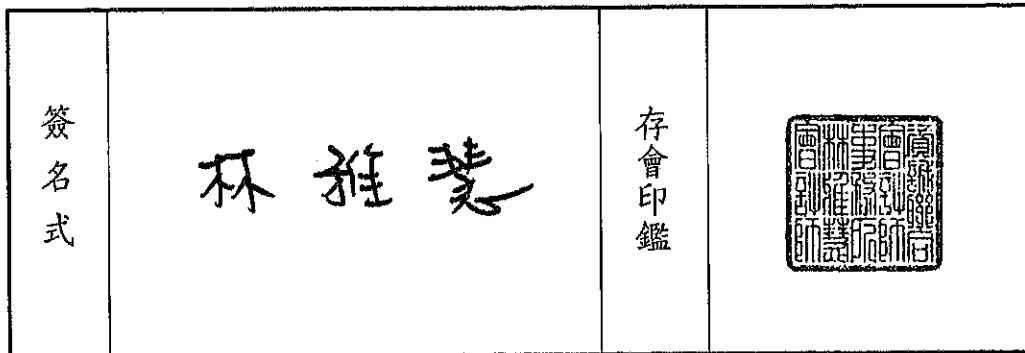 簽名式
林雅慧
存會印鑑
資誠聯合
會計師
事務所
林雅慧
會計師